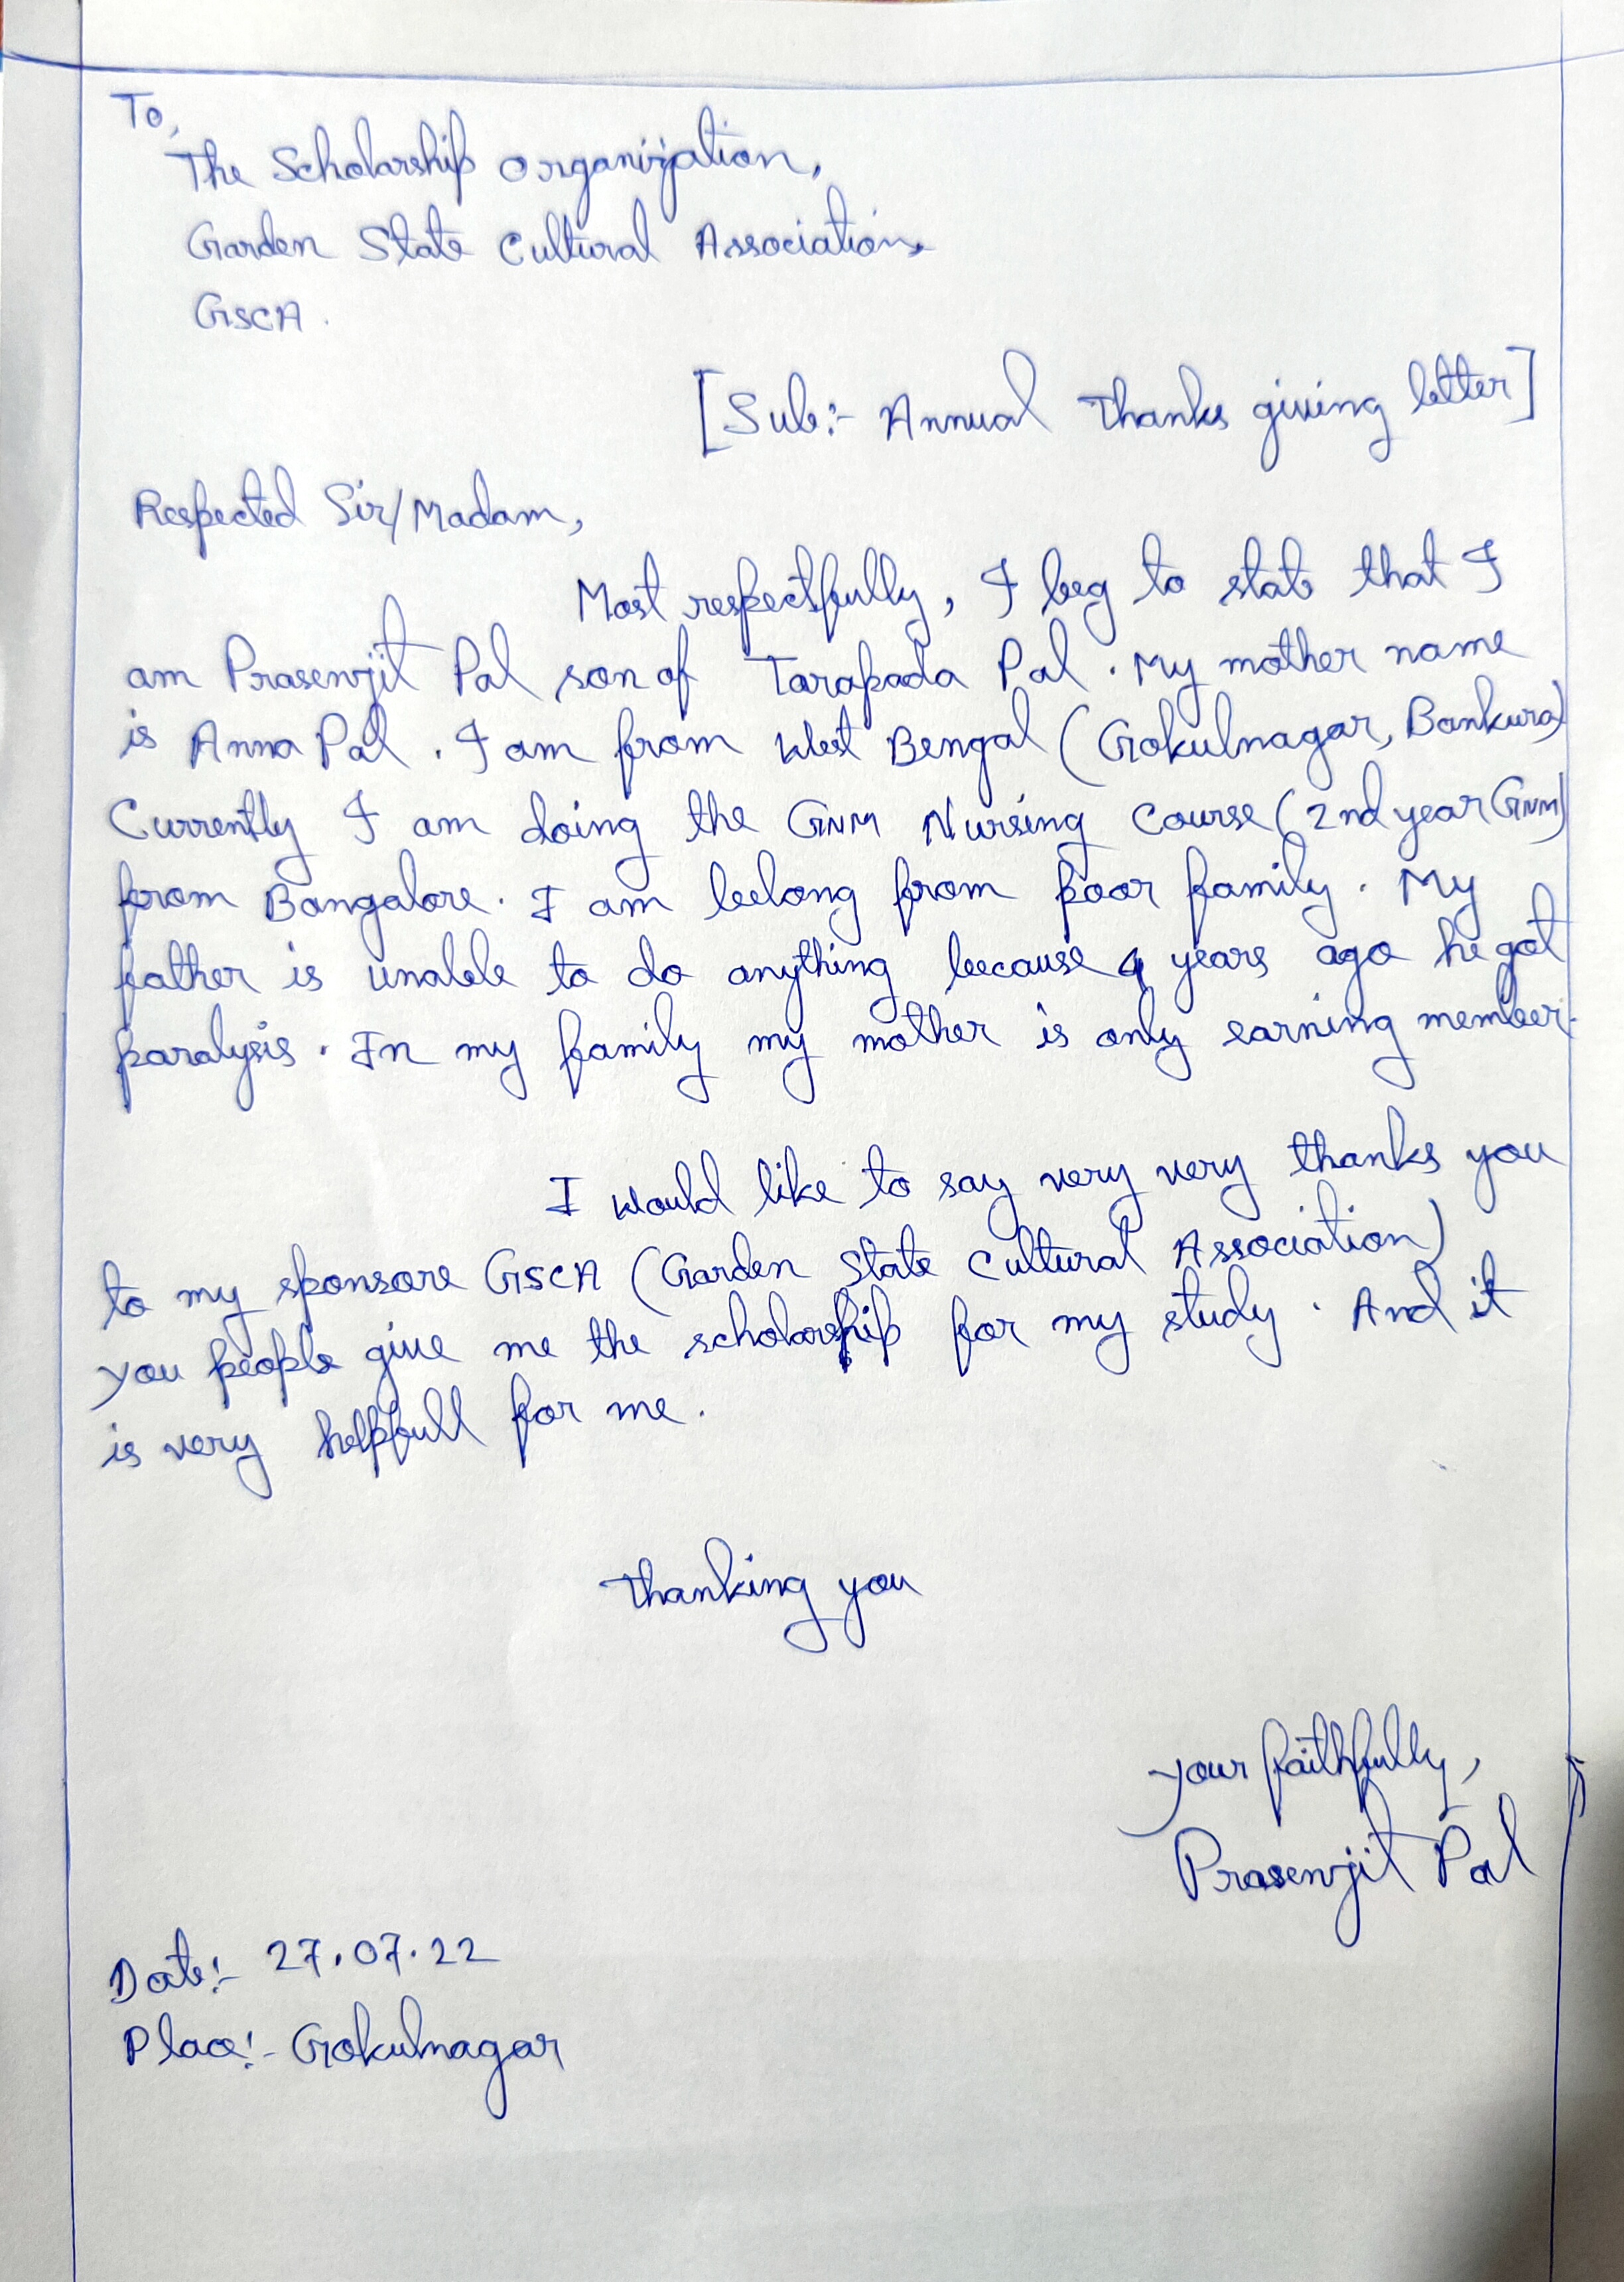 To,
The Scholarship organization,
Garden State Cultural Association,
GSCA.
[Sub:- Annual Thanks giving letter]
Respected Sir/Madam,
Most respectfully, I beg to state that I
am Prasenjit Pal son of Tarapada Pal. My mother name
is Anna Pal. I am from West Bengal (Gokulnagar, Bankura)
Currently I am doing the GNM Nursing Course (2nd year GNM)
from Bangalore. I am belong from poor family. My
father is unable to do anything because 4 years ago he got
paralysis. In my family my mother is only earning member.
I would like to say very very thanks you
to my sponsore GSCA (Garden State Cultural Association)
you people give me the scholarship for my study. And it
is very helpfull for me.
Thanking you
your faithfully,
Prasenjit Pal
Date:- 27.07.22
Place:- Gokulnagar